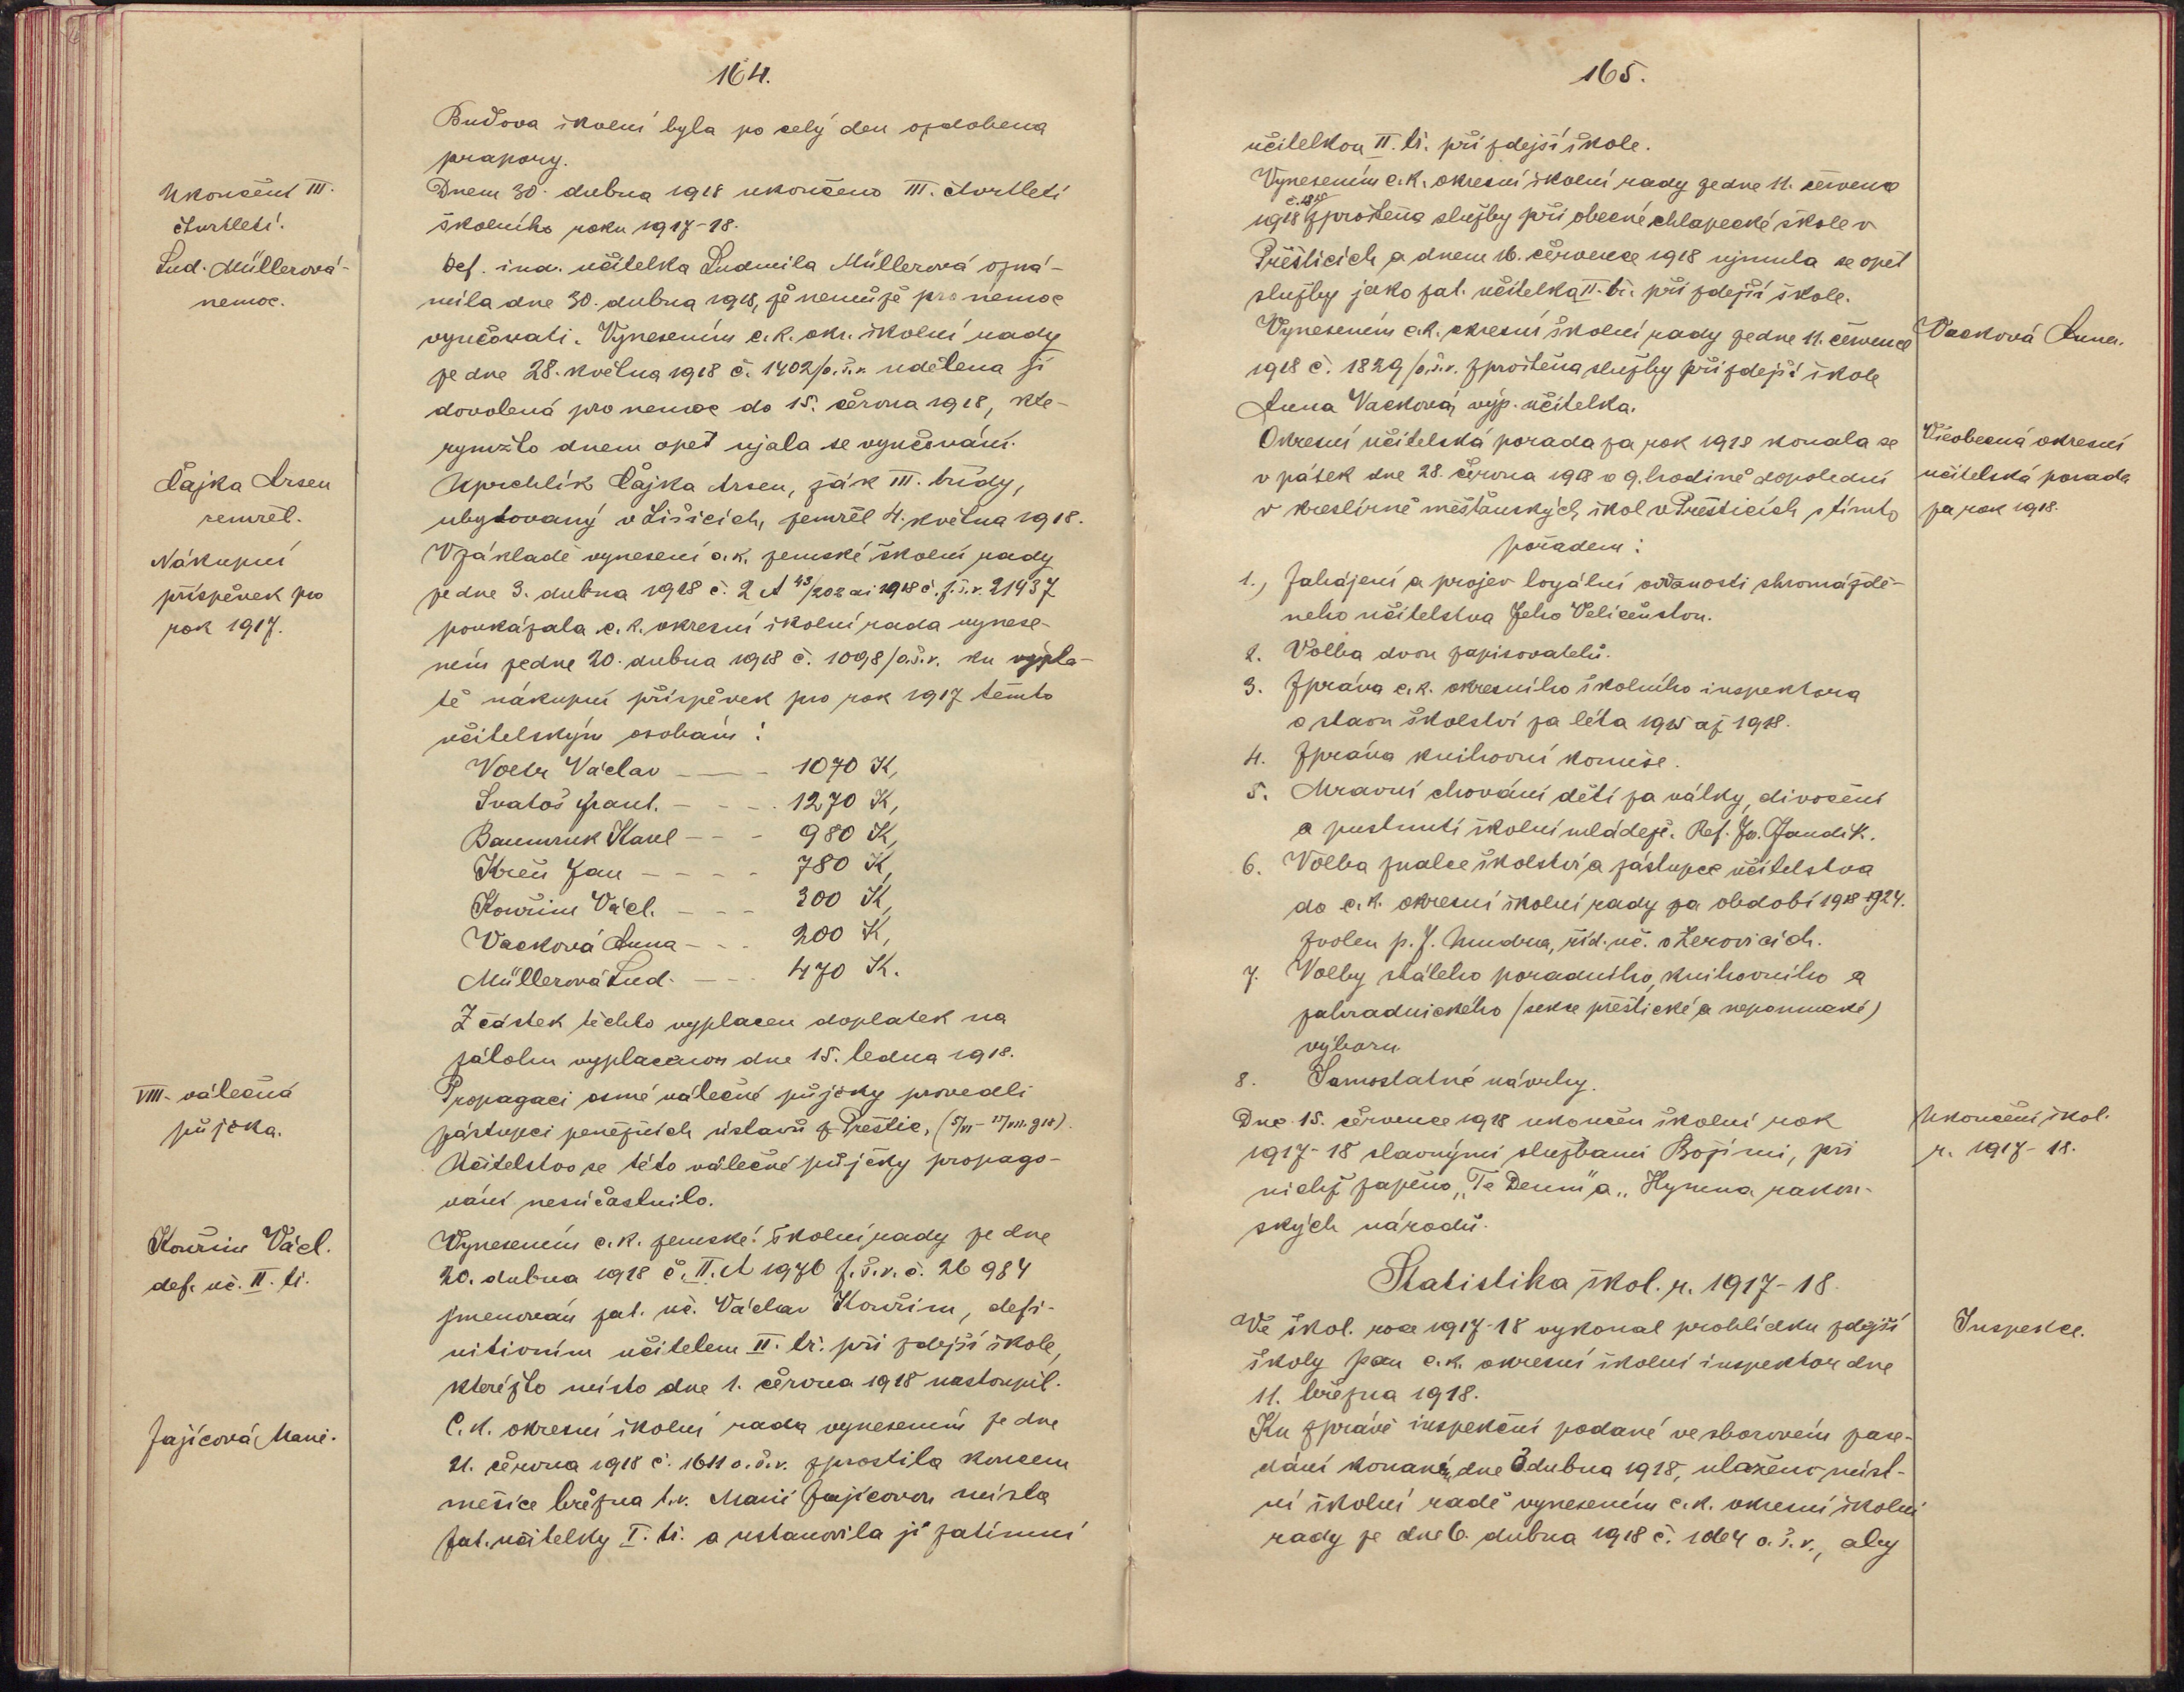 164.
Budova školní byla po celý den ozdobena
prapory.
Ukončení III.
čtvrtletí.
Dnem 30. dubna 1918 ukončeno III. čtvrtletí
školního roku 1917-18.
Lud. Müllerová-
nemoc.
Def. ind. učitelka Ludmila Müllerová ozná-
mila dne 30. dubna 1918, že nemůže pro nemoc
vyučovati. Vynesením c. k. okr. školní rady
ze dne 28. května 1918 č. 1402/o.š.r. udělena jí
dovolená pro nemoc do 15. června 1918, kte-
rýmžto dnem opět ujala se vyučování.
Čajka Arsen
zemřel.
Uprchlík Čajka Arsen, žák III. třídy,
ubytovaný v Lišicích, zemřel 4. května 1918.
Nákupní
příspěvek pro
rok 1917.
V základě vynesení c. k. zemské školní rady
ze dne 3. dubna 1918 č. 2 A 43/202 ai 1918 č. z.š.r. 21437
poukázala c. k. okresní školní rada vynese-
ním ze dne 20. dubna 1918 č. 1098/o.š.r. ku výpla-
tě nákupní příspěvek pro rok 1917 těmto
učitelským osobám:
Voetr Václav — 1070 K,
Svatoš Frant. — 1270 K,
Baumruk Karel — 980 K,
Křen Jan — 780 K,
Kouřim Václ. — 300 K,
Vacková Anna — 200 K,
Müllerová Lud. — 470 K.
Z částek těchto vyplacen doplatek na
zálohu vyplacenou dne 15. ledna 1918.
VIII. válečná
půjčka.
Propagaci osmé válečné půjčky provedli
zástupci peněžních ústavů z Přeštic.
Učitelstvo se této válečné půjčky propago-
vání nesúčastnilo.
Kouřim Václ.
def. uč. II. tř.
Vynesením c. k. zemské školní rady ze dne
20. dubna 1918 č. II. A 1976 z.š.r. č. 26984
jmenován zat. uč. Václav Kouřim, defi-
nitivním učitelem II. tř. při zdejší škole,
kteréžto místo dne 1. června 1918 nastoupil.
Zajícová Marie.
C. k. okresní školní rada vynesením ze dne
21. června 1918 č. 1611 o.š.r. zprostila koncem
měsíce března t.r. Marii Zajícovou místa
zat. učitelky I. tř. a ustanovila ji zatímní
165.
učitelkou II. tř. při zdejší škole.
Vynesením c. k. okresní školní rady ze dne 11. července
1918 zproštěna služby při obecné chlapecké škole v
Přešticích a dnem 16. července 1918 ujmula se opět
služby jako zat. učitelka II. tř. při zdejší škole.
Vacková Anna.
Vynesením c. k. okresní školní rady ze dne 11. července
1918 č. 1829/o.š.r. zproštěna služby při zdejší škole
Anna Vacková, výp. učitelka.
Všeobecná okresní
učitelská porada
za rok 1918.
Okresní učitelská porada za rok 1918 konala se
v pátek dne 28. června 1918 o 9. hodině dopolední
v kreslírně měšťanských škol v Přešticích s tímto
pořadem:
1., Zahájení a projev loyální oddanosti shromáždě-
ného učitelstva Jeho Veličenstvu.
2. Volba dvou zapisovatelů.
3. Zpráva c. k. okresního školního inspektora
o stavu školství za léta 1915 až 1918.
4. Zpráva knihovní komise.
5. Mravní chování dětí za války, divočení
a pustnutí školní mládeže. Ref. Jos. Jandík.
6. Volba znalce školství a zástupce učitelstva
do c. k. okresní školní rady za období 1918-1924.
Zvolen p. J. Mudra, říd. uč. v Žerovicích.
7. Volby stálého poradního, knihovního a
zahradnického (sekce přeštické a nepomucké)
výboru.
8. Samostatné návrhy.
Ukončení škol.
r. 1917-18.
Dne 15. července 1918 ukončen školní rok
1917-18 slavnými službami Božími, při
nichž zapěno „Te Deum" a „Hymna rakou-
ských národů.
Statistika škol. r. 1917-18.
Inspekce.
Ve škol. roce 1917-18 vykonal prohlídku zdejší
školy pan c. k. okresní školní inspektor dne
11. března 1918.
Ku zprávě inspekční podané ve sborovém zase-
dání konaném dne 3. dubna 1918, uloženo míst-
ní školní radě vynesením c. k. okresní školní
rady ze dne 6. dubna 1918 č. 1064 o.š.r., aby